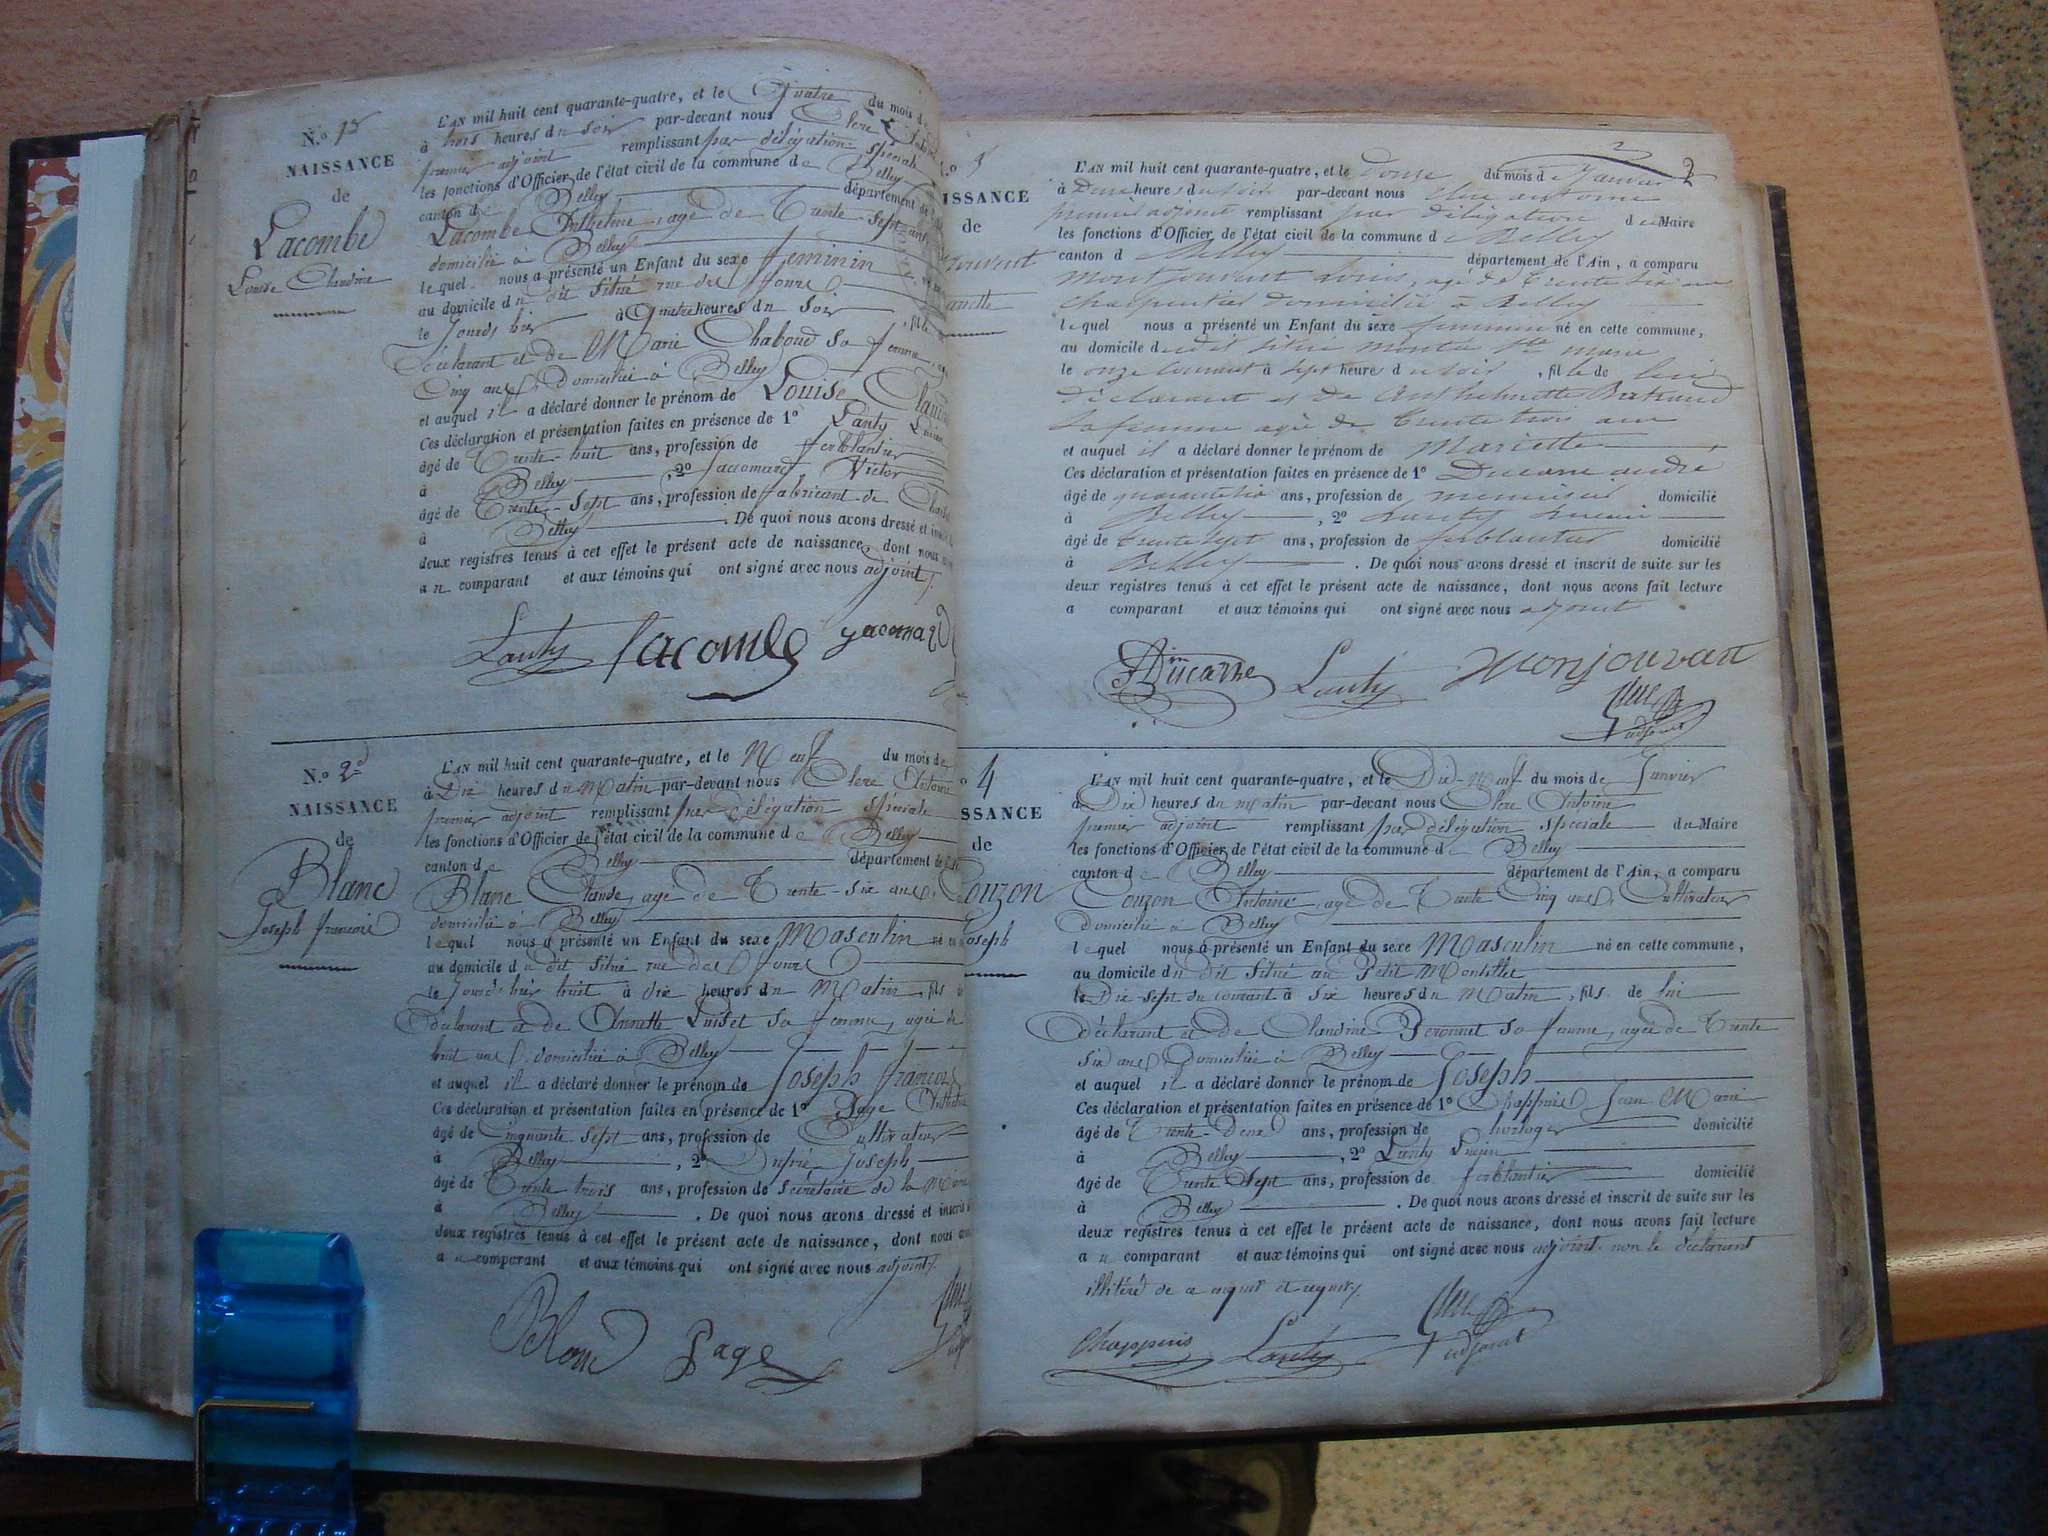 N.º 1er
NAISSANCE
de
Lacombe
Louise Claudine
L'AN mil huit cent quarante-quatre, et le Quatre du mois d
à trois heures du soir par-devant nous Clerc
premier adjoint remplissant par délégation spéciale
les fonctions d'Officier de l'état civil de la commune de Belley
canton de Belley département de
Lacombe Anthelme, agé de Trente-Sept ans,
domicilié à Belley
lequel nous a présenté un Enfant du sexe feminin
au domicile du dit situé rue des fours
le jourd'hui à Quatre heures du soir, fille
déclarant et de Marie Chaboud sa femme,
Cinq ans, Domiciliée à Belley
et auquel il a déclaré donner le prénom de Louise
Ces déclaration et présentation faites en présence de 1º Lanty
âgé de Trente-huit ans, profession de ferblantier
à Belley, 2º Jaccomard Victor
âgé de Trente-Sept ans, profession de fabricant de
à Belley. De quoi nous avons dressé et
deux registres tenus à cet effet le présent acte de naissance, dont nous
au comparant et aux témoins qui ont signé avec nous adjoint.
Lanty Lacombe Jacomard
N.º 2
NAISSANCE
de
Blanc
Joseph françois
L'AN mil huit cent quarante-quatre, et le Neuf du mois de
à Dix heures du Matin par-devant nous Clerc Antoine
premier adjoint remplissant par délégation spéciale
les fonctions d'Officier de l'état civil de la commune de Belley
canton de Belley département de
Blanc Claude, agé de Trente-six ans,
domicilié à Belley
lequel nous a présenté un Enfant du sexe Masculin né
au domicile du dit situé rue des fours
le jourd'hui huit à dix heures du Matin, fils
déclarant et de Annette Guidet sa femme, agée de
huit ans, domiciliée à Belley
et auquel il a déclaré donner le prénom de Joseph françois
Ces déclaration et présentation faites en présence de 1º Page
âgé de Cinquante Sept ans, profession de Cultivateur
à Belley, 2º Dupré Joseph
âgé de Trente trois ans, profession de Sécrétaire de la Mairie
à Belley. De quoi nous avons dressé et inscrit
deux registres tenus à cet effet le présent acte de naissance, dont nous
au comparant et aux témoins qui ont signé avec nous adjoint.
Blanc Page
2
ISSANCE
de
L'AN mil huit cent quarante-quatre, et le douze du mois de Janvier
à Deux heures du soir par-devant nous Clerc antoine
premier adjoint remplissant par délégation du Maire
les fonctions d'Officier de l'état civil de la commune de Belley
canton de Belley département de l'Ain, a comparu
Montjouvent Louis, agé de Trente six ans
charpentier domicilié à Belley
lequel nous a présenté un Enfant du sexe feminin né en cette commune,
au domicile du dit situé montée Ste marie
le onze courant à sept heures du soir, fille de lui
déclarant et de Anthelmette Bertrand
sa femme agée de trente trois ans
et auquel il a déclaré donner le prénom de Mariette
Ces déclaration et présentation faites en présence de 1º Ducarre andré
âgé de quarante six ans, profession de menuisier domicilié
à Belley, 2º Lanty Lucien
âgé de trente sept ans, profession de ferblantier domicilié
à Belley. De quoi nous avons dressé et inscrit de suite sur les
deux registres tenus à cet effet le présent acte de naissance, dont nous avons fait lecture
a comparant et aux témoins qui ont signé avec nous adjoint
Ducarre Lanty Monjouvant
adjoint
4
SSANCE
de
Couzon
Joseph
L'AN mil huit cent quarante-quatre, et le Dix-Neuf du mois de Janvier
à Dix heures du matin par-devant nous Clerc Antoine
premier adjoint remplissant par délégation spéciale du Maire
les fonctions d'Officier de l'état civil de la commune de Belley
canton de Belley département de l'Ain, a comparu
Couzon Antoine, agé de Trente Cinq ans, Cultivateur
domicilié à Belley
lequel nous a présenté un Enfant du sexe Masculin né en cette commune,
au domicile du dit situé au Petit
le Dix-sept du courant à six heures du Matin, fils de lui
déclarant et de Claudine Peronnet sa femme, agée de Trente
six ans, Domiciliée à Belley
et auquel il a déclaré donner le prénom de Joseph
Ces déclaration et présentation faites en présence de 1º Chappuis Jean Marie
âgé de Trente-Deux ans, profession de horloger domicilié
à Belley, 2º Lanty Lucien
âgé de Trente Sept ans, profession de ferblantier domicilié
à Belley. De quoi nous avons dressé et inscrit de suite sur les
deux registres tenus à cet effet le présent acte de naissance, dont nous avons fait lecture
au comparant et aux témoins qui ont signé avec nous adjoint non le déclarant
illitéré de a requis.
Chappuis Lanty
adjoint